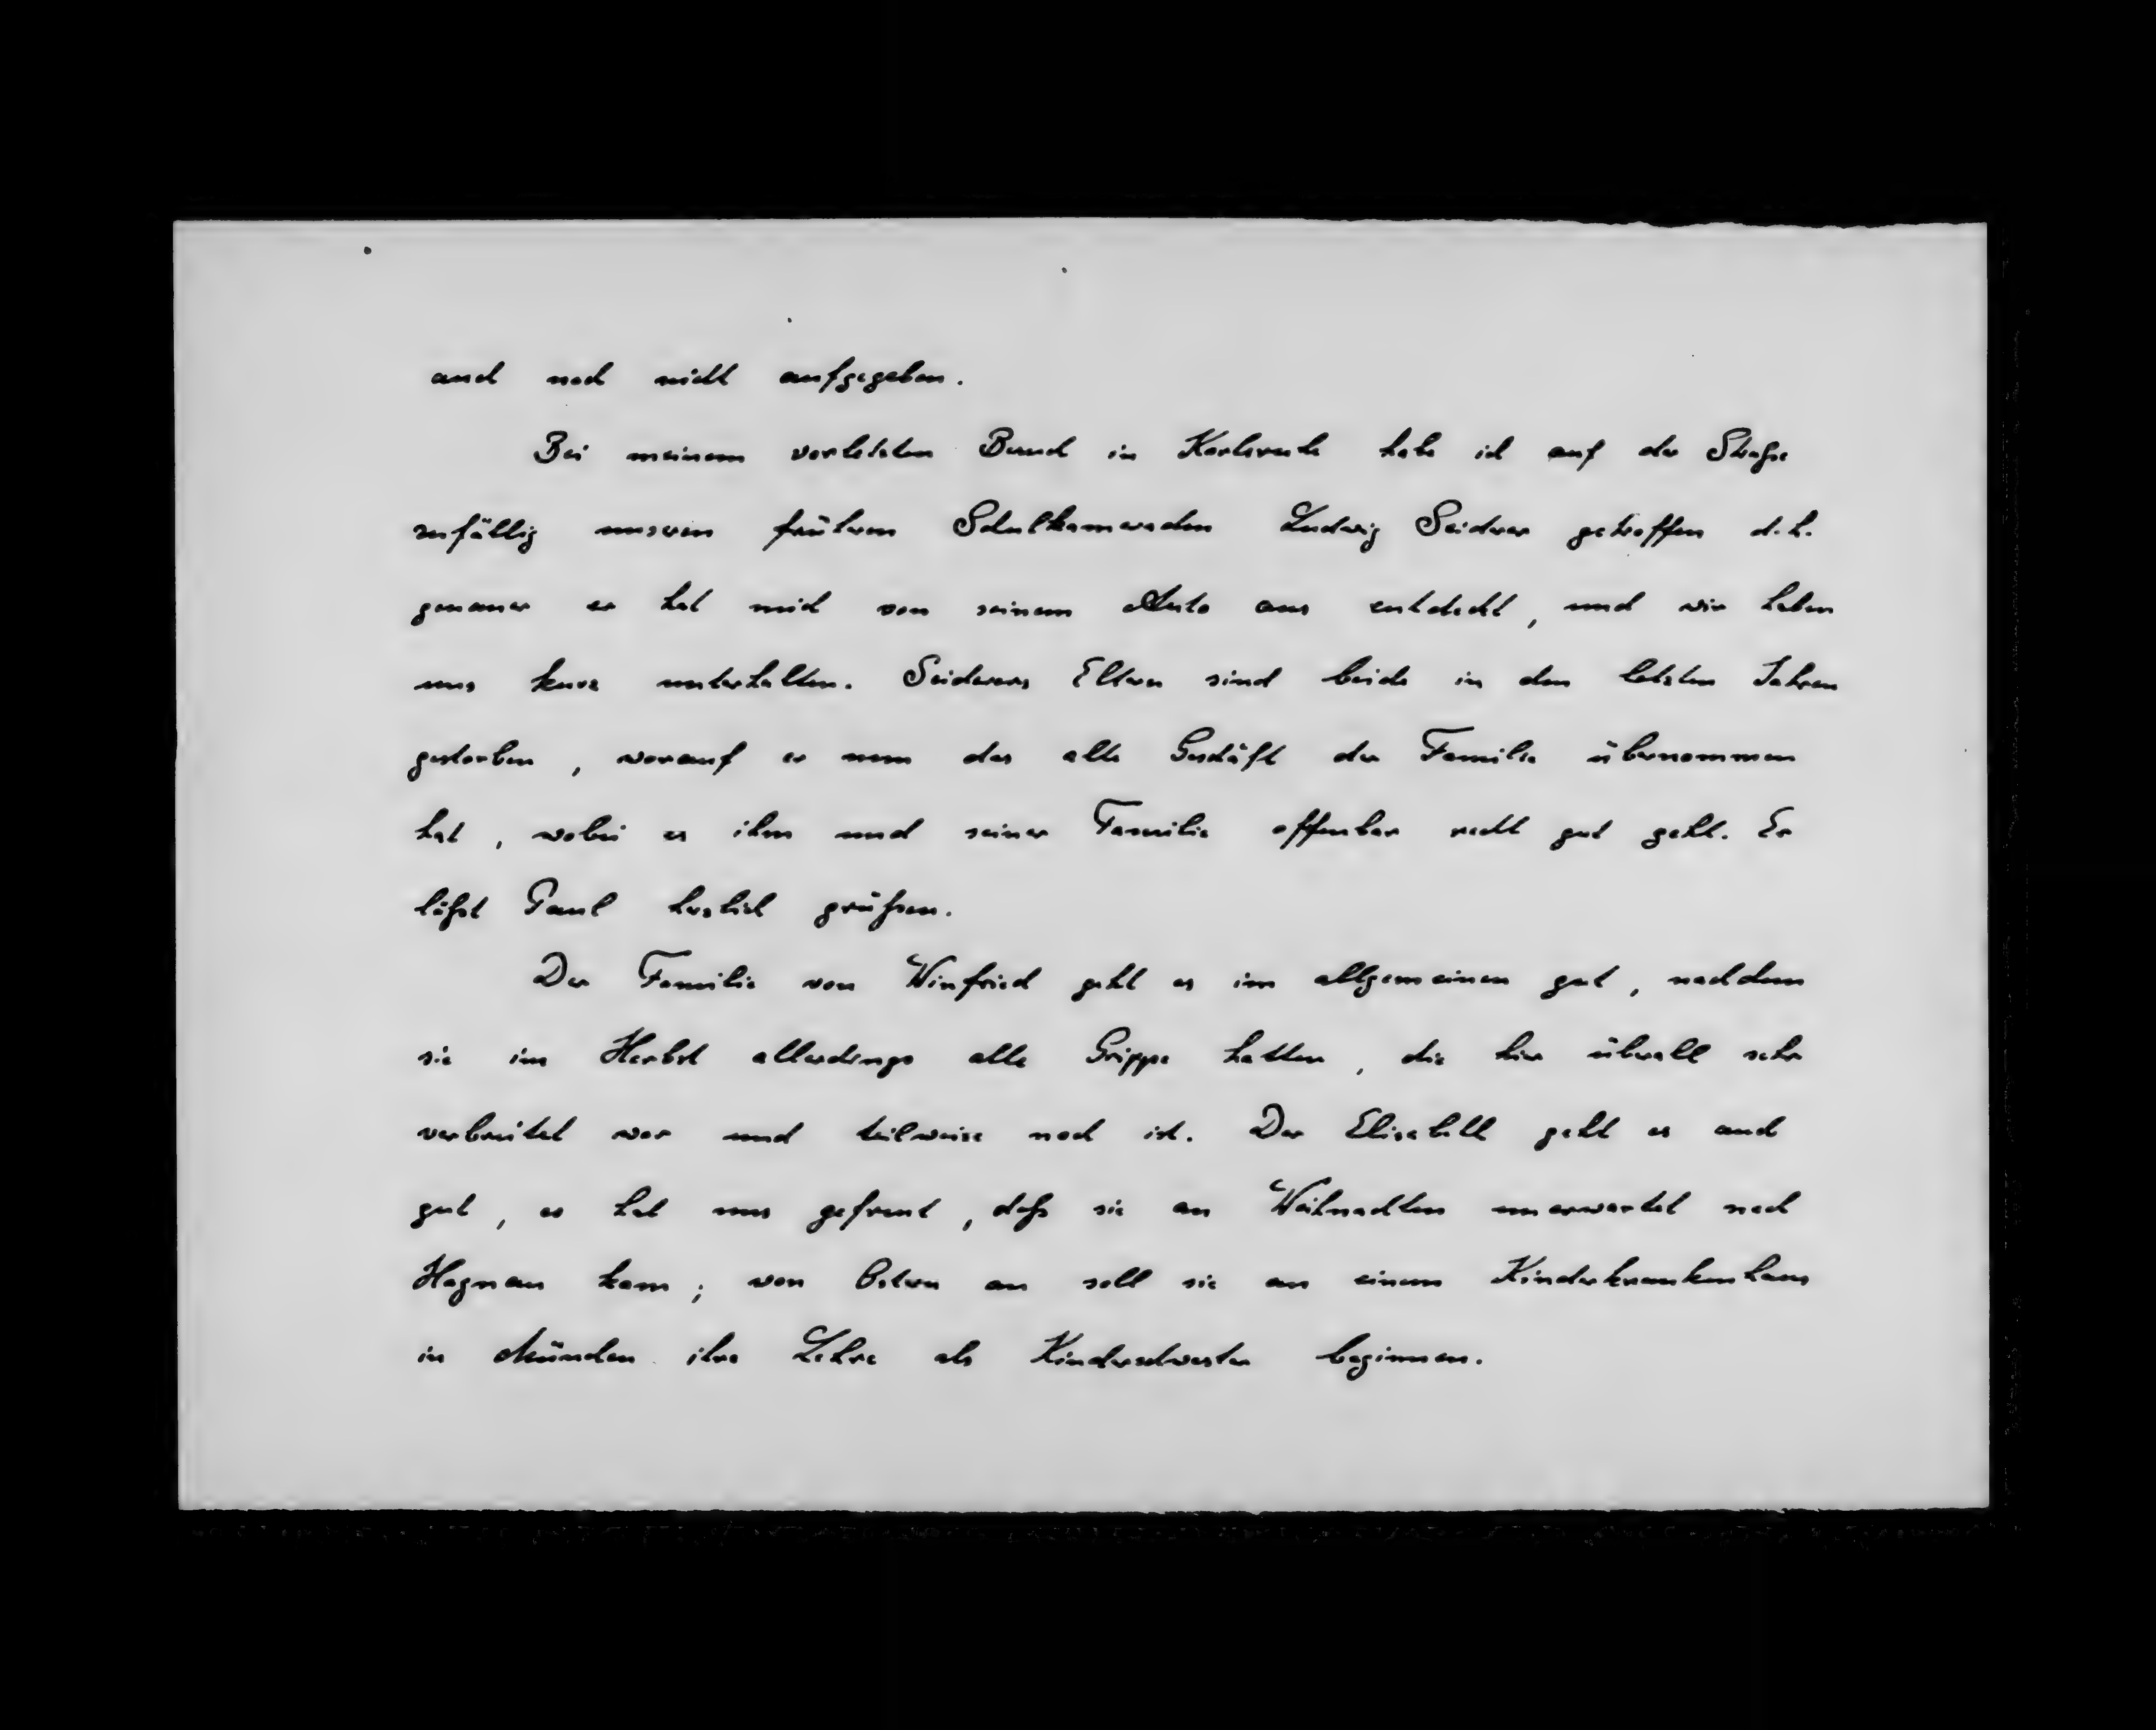 auch noch nicht aufgegeben.
Bei meinem vorletzten Besuch in Karlsruhe habe ich auf der Straße
zufällig unseren früheren Schulkameraden Ludwig Seiderer getroffen d.h.
genauer er hat mich von seinem Auto aus entdeckt, und wir haben
uns kurz unterhalten. Seiderers Eltern sind beide in den letzten Jahren
gestorben, worauf er nun das alte Geschäft der Familie übernommen
hat, wobei es ihm und seiner Familie offenbar recht gut geht. Er
läßt Paul herzlich grüßen.
Der Familie von Winfried geht es im allgemeinen gut, nachdem
sie im Herbst allerdings alle Grippe hatten, die hier überall sehr
verbreitet war und teilweise noch ist. Der Elisabeth geht es auch
gut, es hat uns gefreut, daß sie an Weihnachten unerwartet nach
Hagnau kam; von Ostern an soll sie an einem Kinderkrankenhaus
in München ihre Lehre als Kinderschwester beginnen.